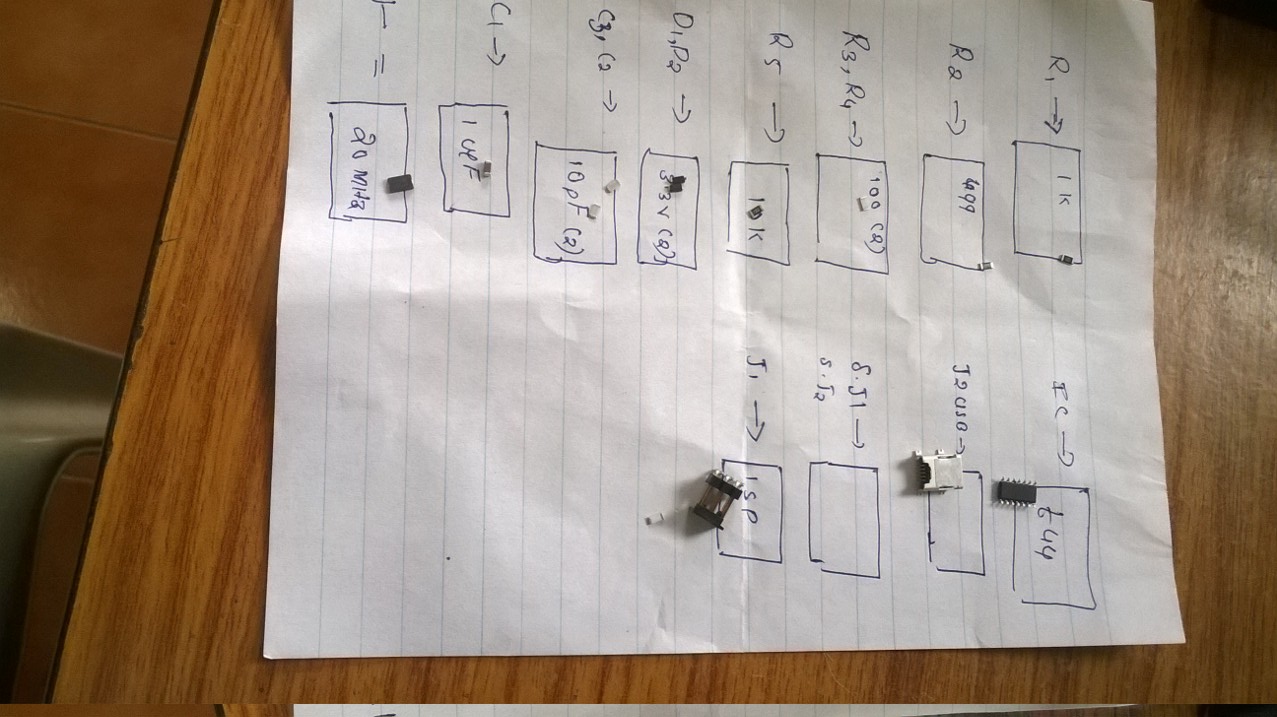 R1 → 1K
R2 → 499
R3, R4 → 100 (2)
R5 → 10K
D1, D2 → 3.3V (2)
C3, C2 → 10pF (2)
C1 → 1uF
= 20MHz
IC → t44
J2 USB →
S.J1 →
S.J2
J1 → ISP